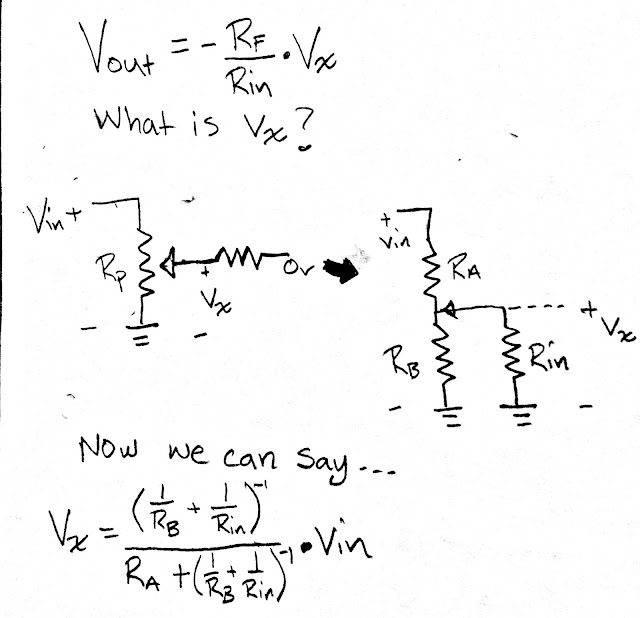 Vout = - RF/Rin · Vx
What is Vx?
Vin +
RP
+
Vx
0v
-
-
+
Vin
RA
+
Vx
RB
Rin
-
-
Now we can say...
Vx = (1/RB + 1/Rin)^-1 / RA + (1/RB + 1/Rin)^-1 · Vin